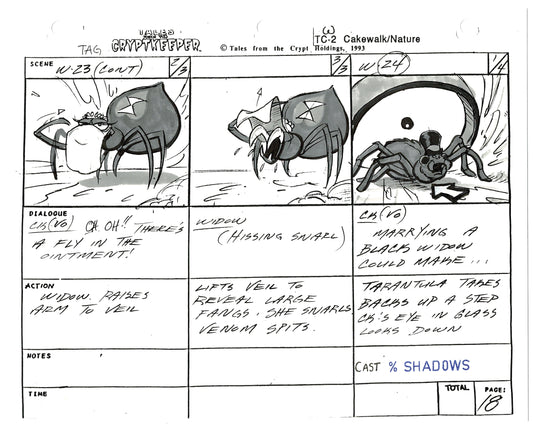 TAG
TALES
FROM THE
CRYPTKEEPER
© Tales from the Crypt Holdings, 1993
(W)
TC-2 Cakewalk/Nature
SCENE W-23 (CONT) 2/3
3/3
W-24 1/4
DIALOGUE
CK (VO) OH OH!! THERE'S
A FLY IN THE
OINTMENT!
WIDOW
(HISSING SNARL)
CK (VO)
MARRYING A
BLACK WIDOW
COULD MAKE...
ACTION
WIDOW RAISES
ARM TO VEIL
LIFTS VEIL TO
REVEAL LARGE
FANGS. SHE SNARLS
VENOM SPITS.
TARANTULA TAKES
BACKS UP A STEP
CK'S EYE IN GLASS
LOOKS DOWN
NOTES
CAST % SHADOWS
TIME
TOTAL
PAGE:
18